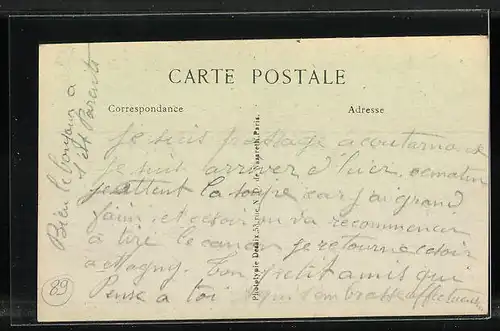 CARTE POSTALE
Correspondance
Adresse
Je suis passage a
Je suis arriver d'hier, ce matin
J'e attent la soupe car j'ai grand
faim, et ce soir on va recommencer
à tiré le canon je retourne ce soir
a Magny. Ton petit amis qui
Pense a toi qui t'embrasse affectueus
Bien le bonjour a
tes Parents
Phototypie Desaix, rue N.-D. de Nazareth, Paris.
89